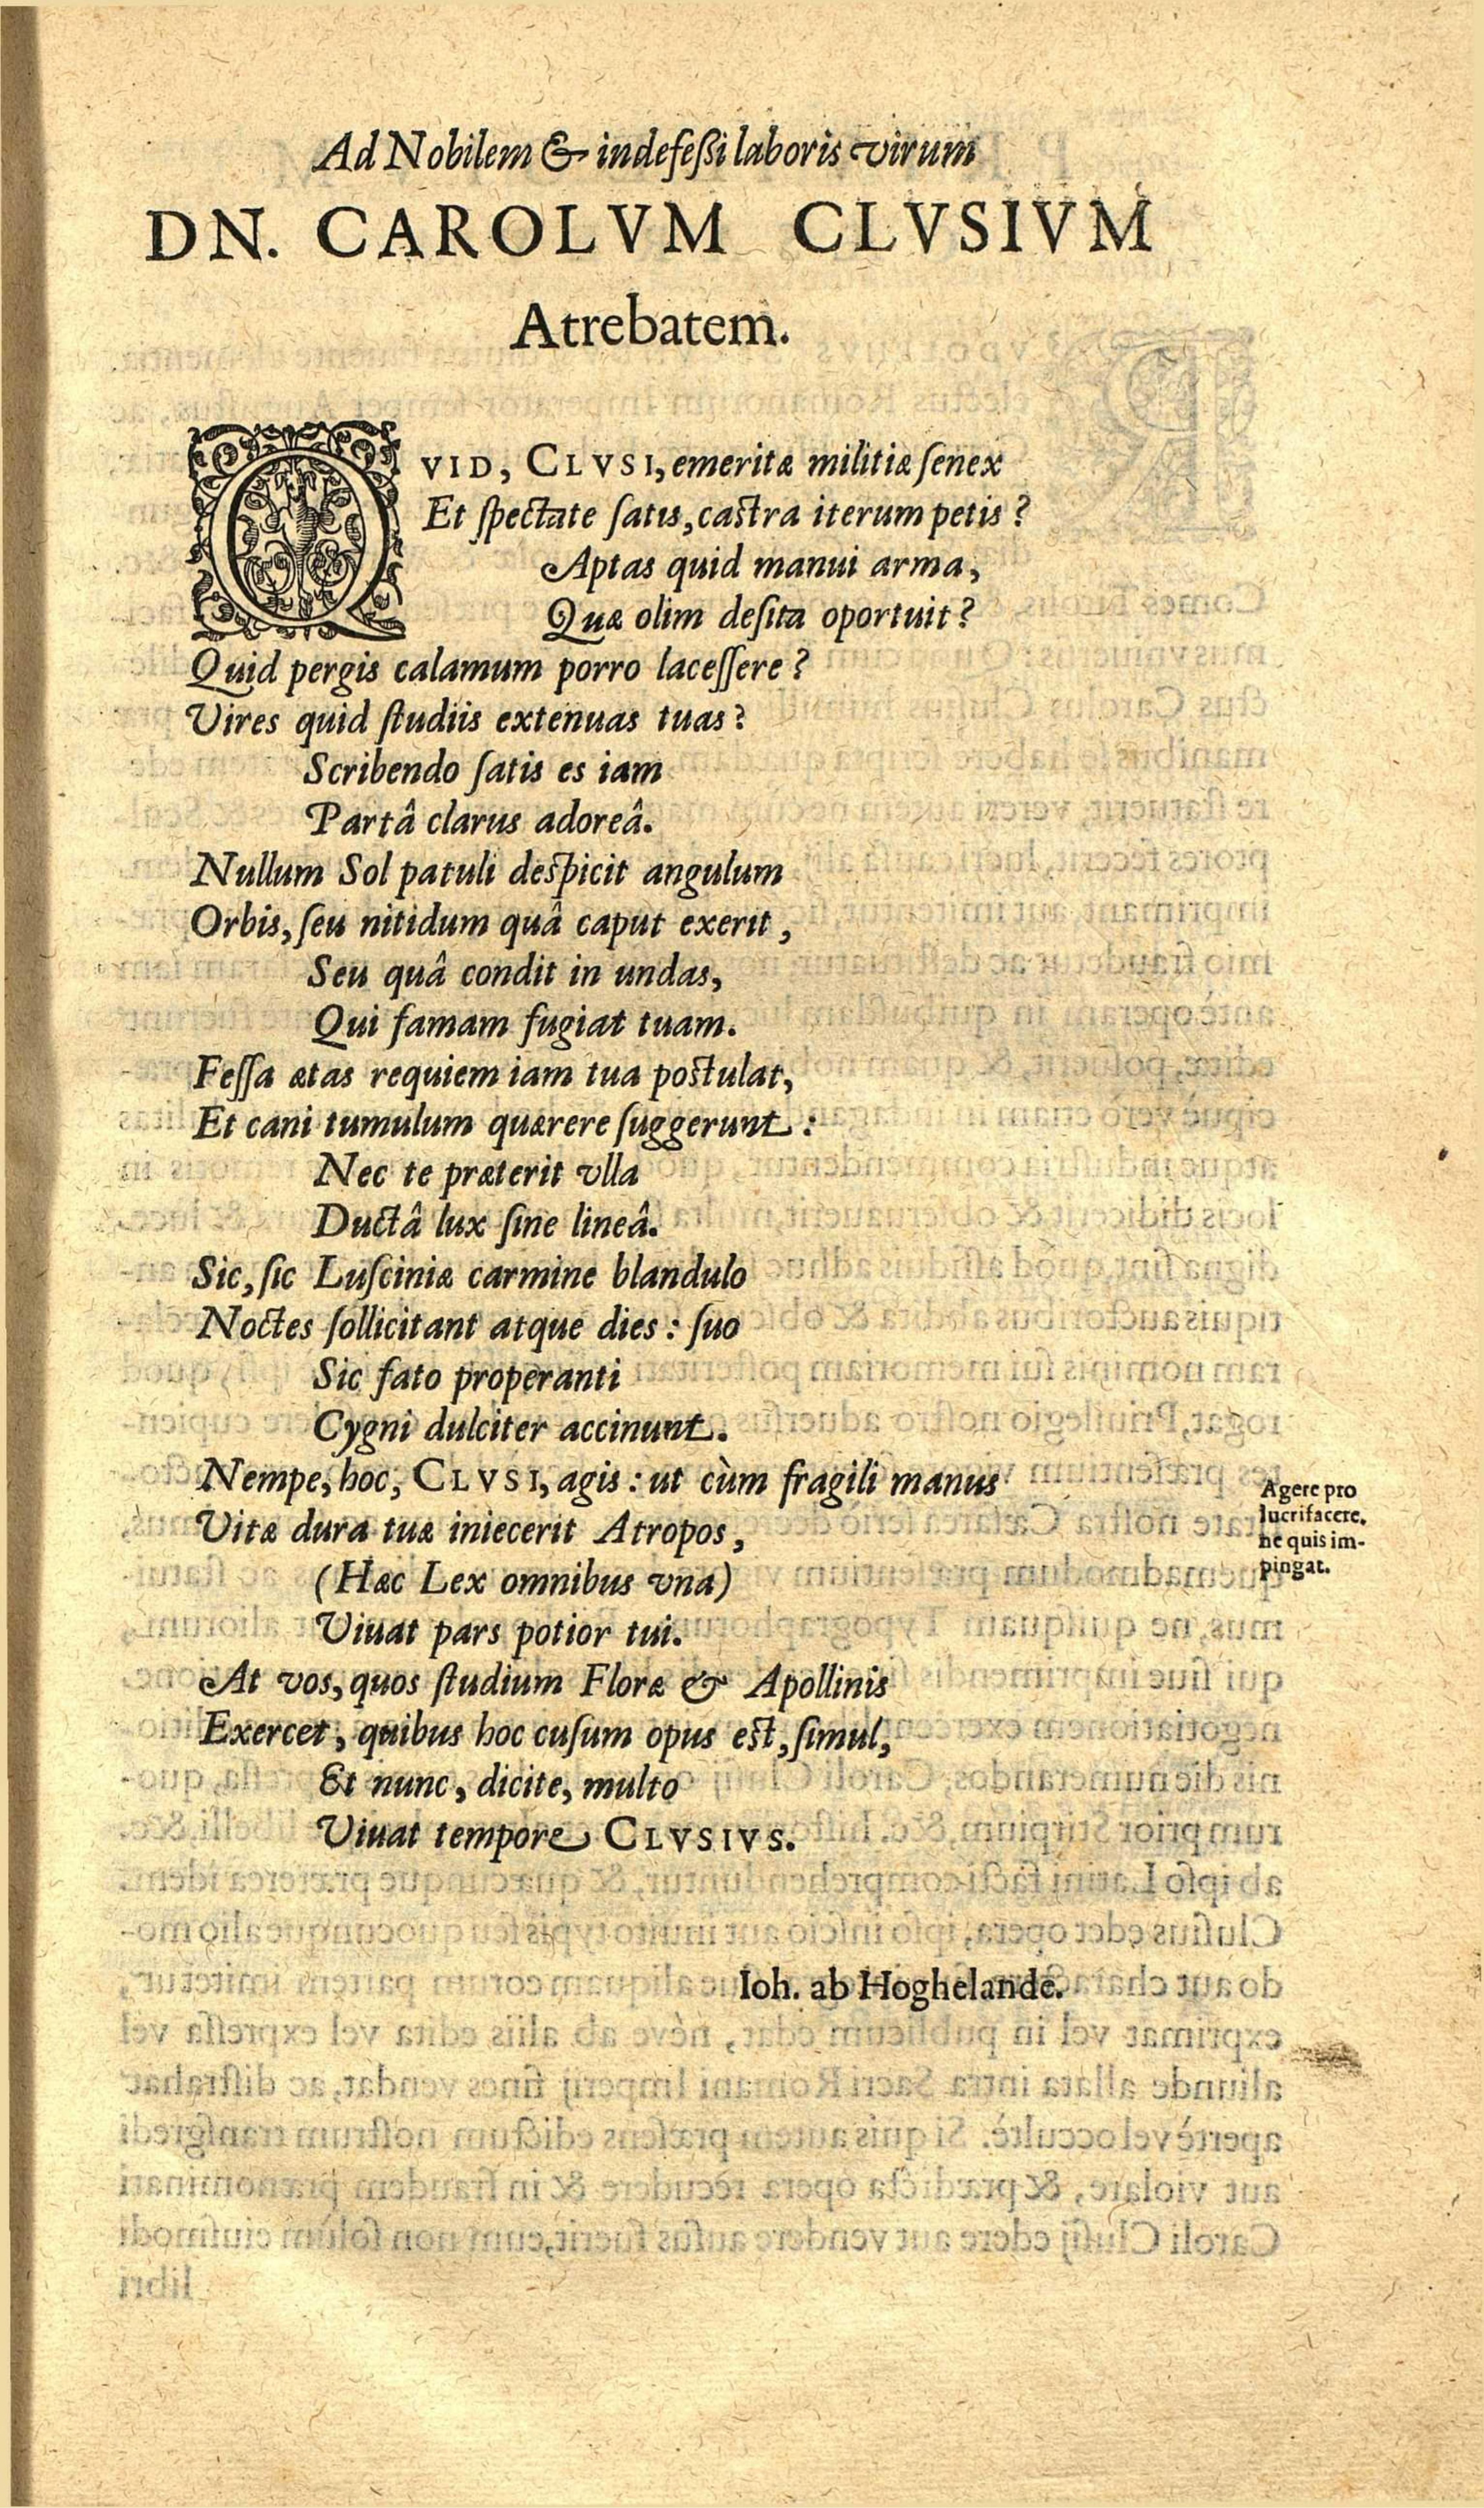 Ad Nobilem & indefeßi laboris virum
DN. CAROLVM CLVSIVM
Atrebatem.
QVID, CLVSI, emeritæ militiæ ſenex
Et ſpectate ſatis, caſtra iterum petis?
Aptas quid manui arma,
Quæ olim deſita oportuit?
Quid pergis calamum porro laceſſere?
Vires quid ſtudiis extenuas tuas?
Scribendo ſatis es iam
Partâ clarus adoreâ.
Nullum Sol patuli deſpicit angulum
Orbis, ſeu nitidum quâ caput exerit,
Seu quâ condit in undas,
Qui famam fugiat tuam.
Feſſa ætas requiem iam tua poſtulat,
Et cani tumulum quærere ſuggerunt:
Nec te præterit vlla
Ductâ lux ſine lineâ.
Sic, ſic Luſciniæ carmine blandulo
Noctes ſollicitant atque dies: ſuo
Sic fato properanti
Cygni dulciter accinunt.
Nempe, hoc, CLVSI, agis: ut cùm fragili manus
Vitæ dura tuæ iniecerit Atropos,
(Hæc Lex omnibus vna)
Viuat pars potior tui.
Agere pro
lucrifacere.
ne quis im-
pingat.
At vos, quos ſtudium Floræ & Apollinis
Exercet, quibus hoc cuſum opus eſt, ſimul,
Et nunc, dicite, multo
Viuat tempore CLVSIVS.
Ioh. ab Hoghelande.